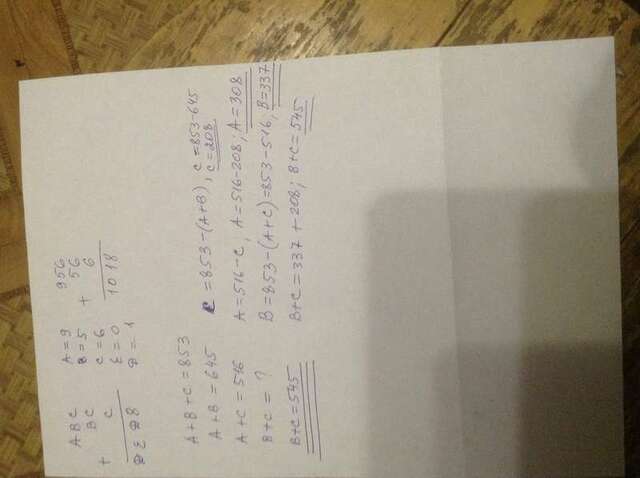 ABC
BC
+ C
DED8
A = 9
B = 5
C = 6
E = 0
D = 1
956
56
+ 6
1018
A+B+C = 853
A+B = 645
A+C = 516
B+C = ?
B+C = 545
C = 853-(A+B); C = 853-645
C = 208
A = 516-C, A = 516-208; A = 308
B = 853-(A+C) = 853-516, B = 337
B+C = 337 + 208; B+C = 545